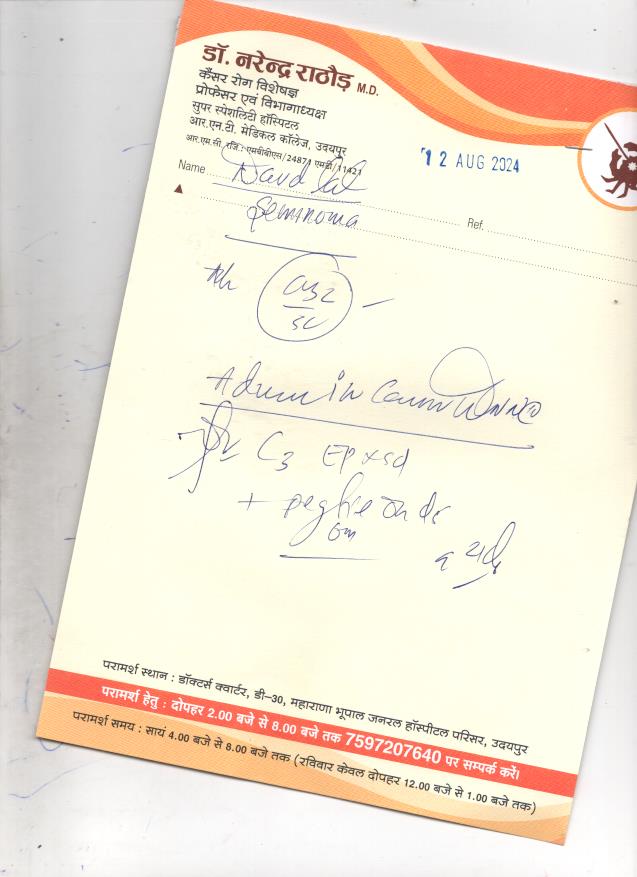 डॉ. नरेन्द्र राठौड़ M.D.
कैंसर रोग विशेषज्ञ
प्रोफेसर एवं विभागाध्यक्ष
सुपर स्पेशलिटी हॉस्पिटल
आर.एन.टी. मेडिकल कॉलेज, उदयपुर
आर.एम.सी. रजि.: एमबीबीएस/24871 एमडी/11421
12 AUG 2024
Name
Seminoma
Ref.
C3 EP x 5d
+
परामर्श स्थान : डॉक्टर्स क्वार्टर, डी-30, महाराणा भूपाल जनरल हॉस्पीटल परिसर, उदयपुर
परामर्श हेतु : दोपहर 2.00 बजे से 8.00 बजे तक 7597207640 पर सम्पर्क करें।
परामर्श समय : सायं 4.00 बजे से 8.00 बजे तक (रविवार केवल दोपहर 12.00 बजे से 1.00 बजे तक)